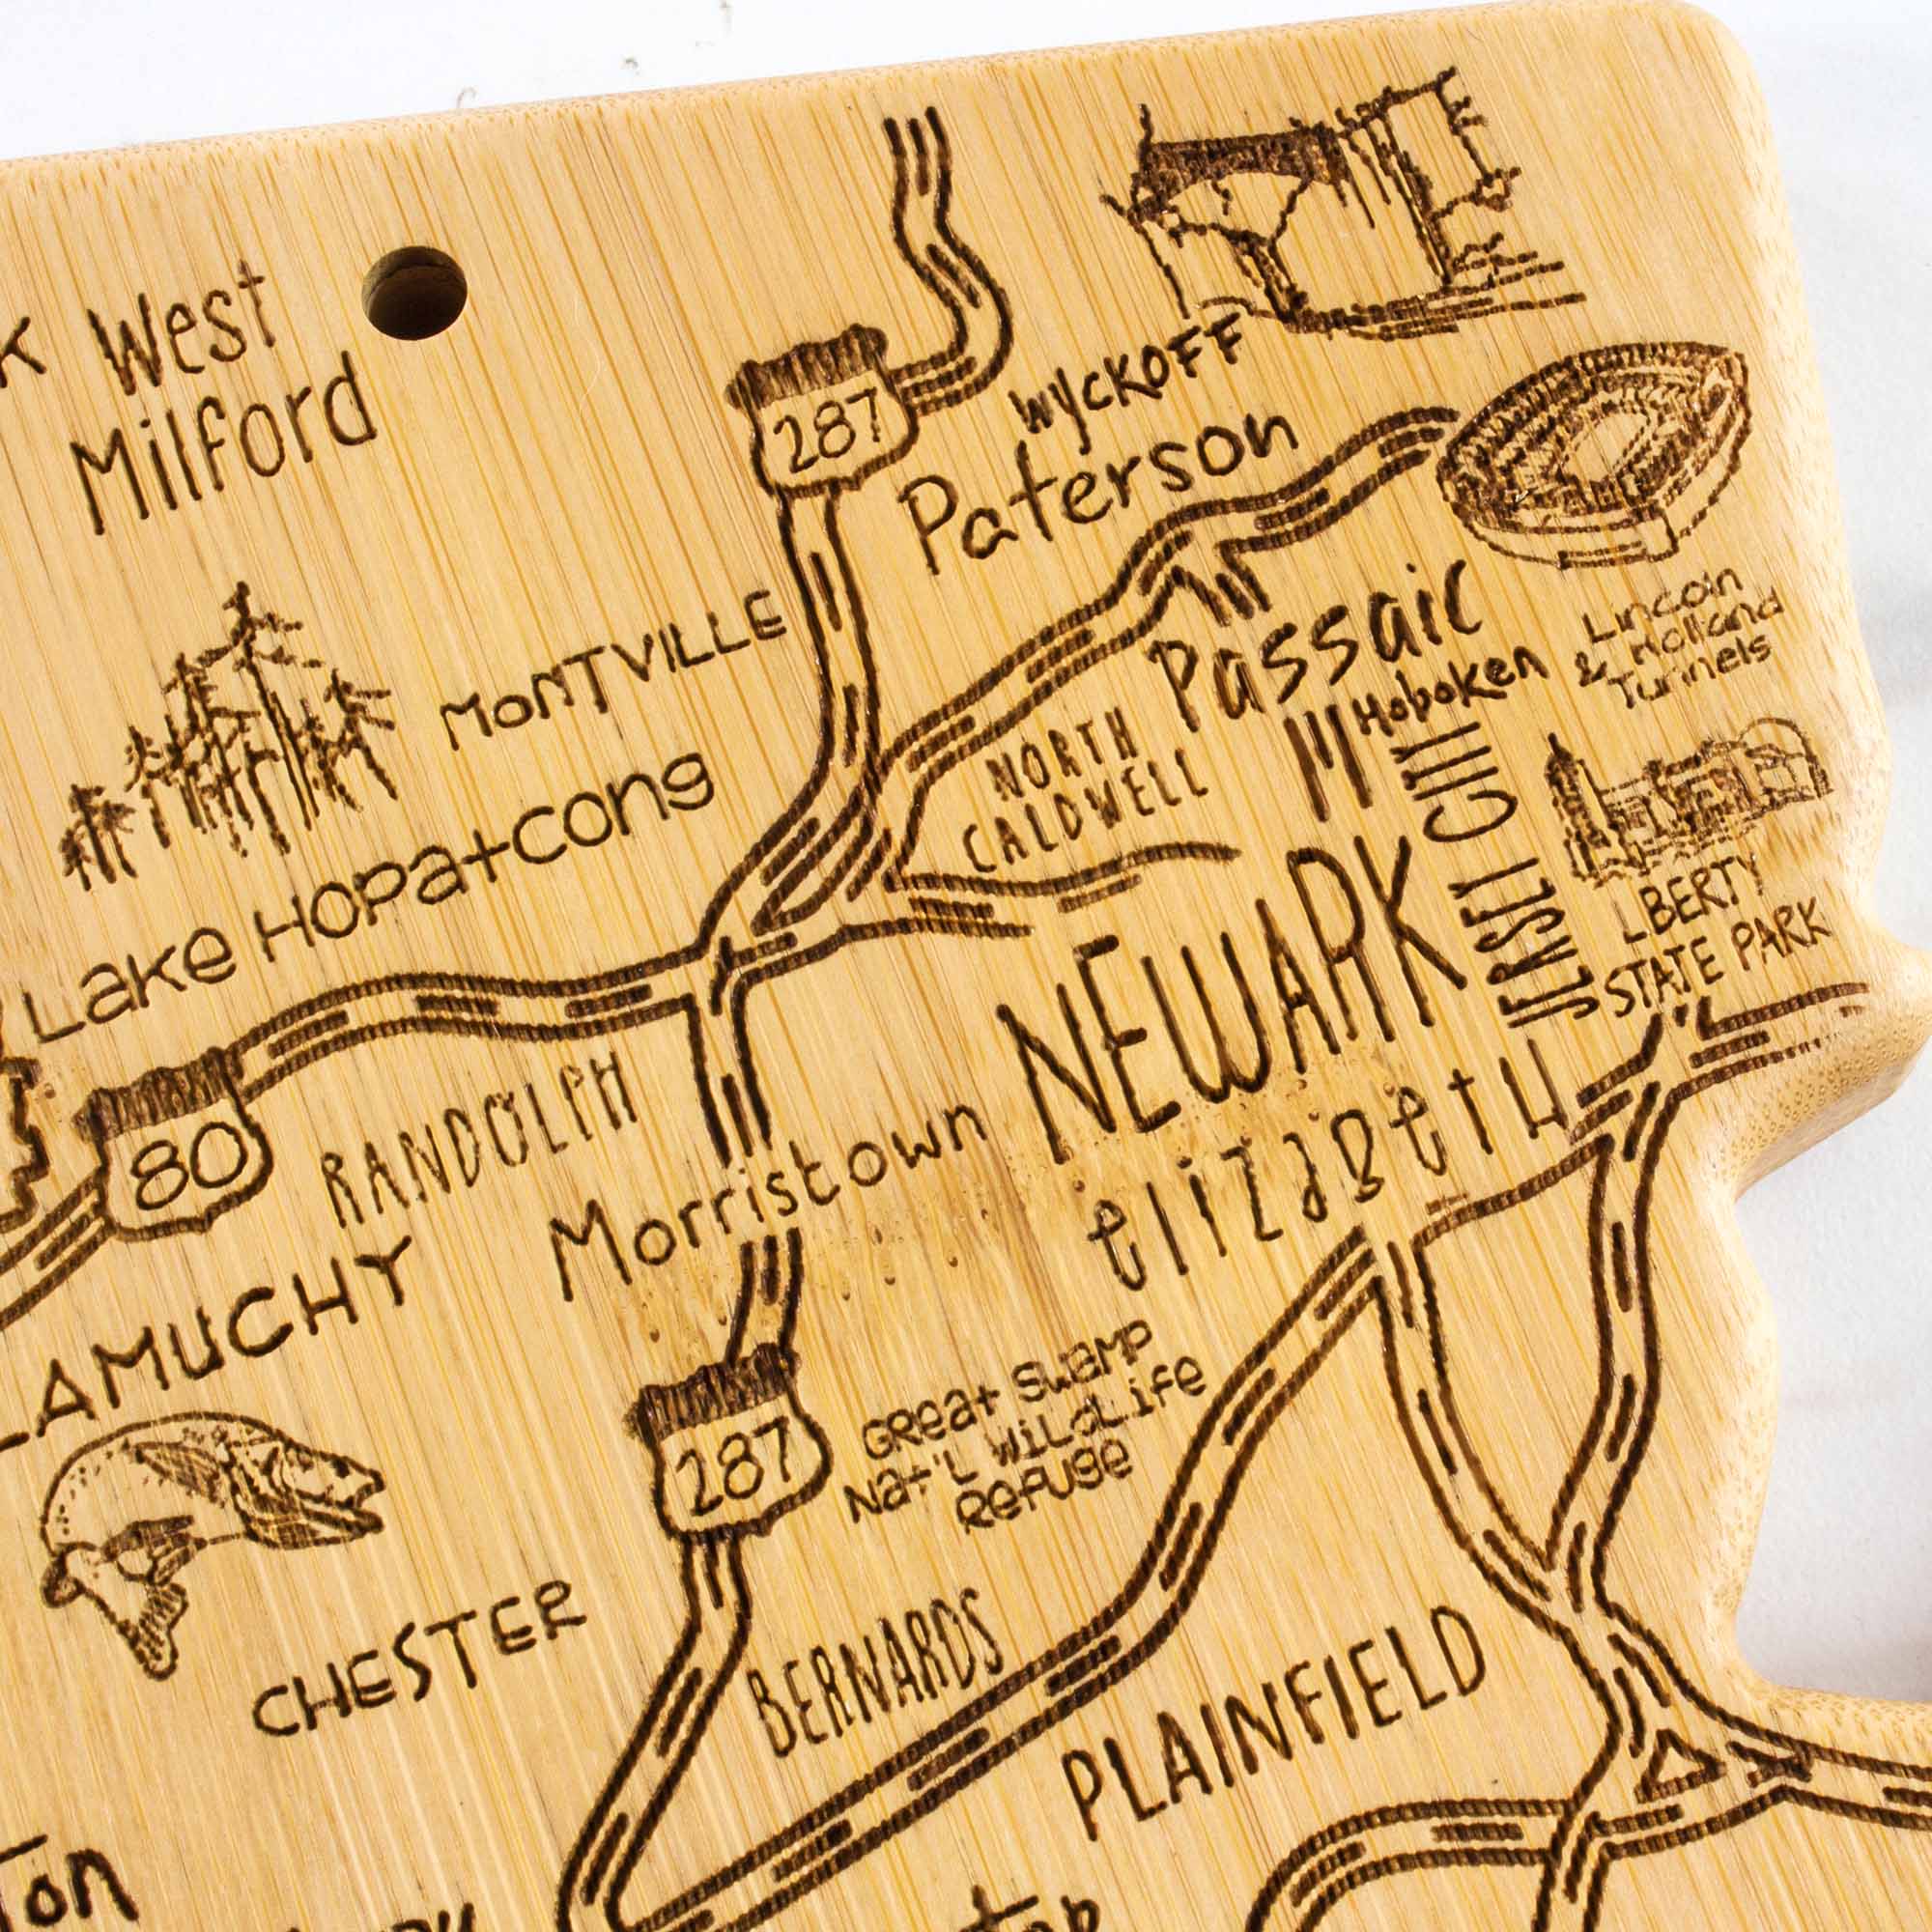 West
Milford
287
WYCKOFF
Paterson
MONTVILLE
Passaic
Lincoln
& Holland
Tunnels
Hoboken
NORTH
CALDWELL
JERSEY CITY
Lake Hopatcong
NEWARK
LBERTY
STATE PARK
80
RANDOLPH
Morristown
elizabeth
LAMUCHY
287
Great Swamp
Nat'l Wildlife
Refuge
CHESTER
BERNARDS
PLAINFIELD